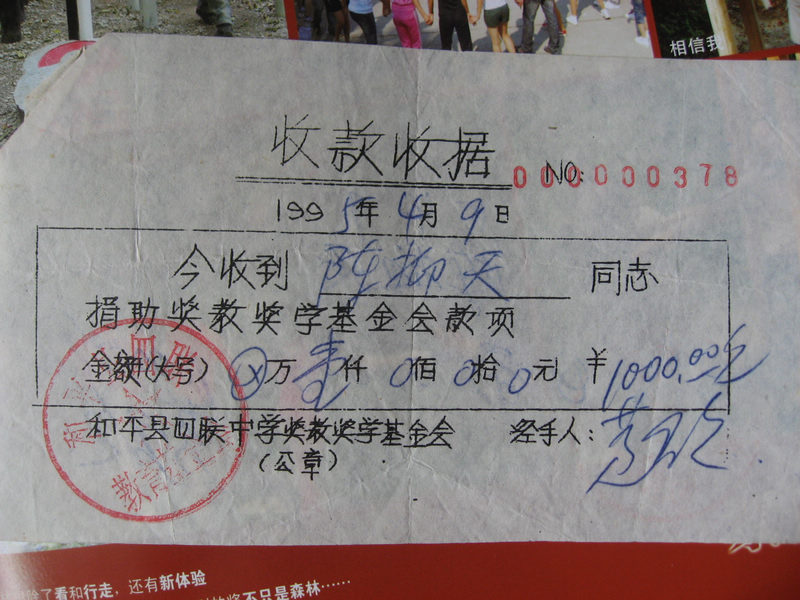 相信我
收款收据
NO: 0000000378
1995年4月9日
今收到 陈柳天 同志
捐助奖教奖学基金会款项
金额(大号) ⊗万壹仟0佰0拾0元 ¥1000.00元
和平县四联中学奖教奖学基金会 经手人:
(公章)
除了看和行走，还有新体验
不只是森林……